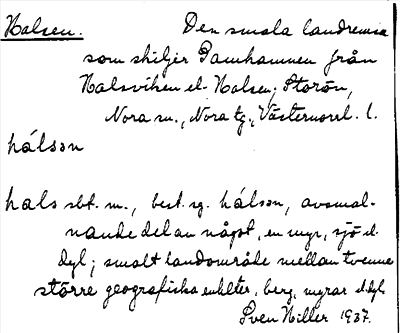 Halsen. Den smala landremsa
som skiljer Damhamnen från
Halsviken el. Halsen, Storön,
Nora sn., Nora tg., Västernorrl. l.
hálsən
hals sbt. m., best. sg. hálsən, avsmal-
nande del av något, en myr, sjö el.
dyl; smalt landområde mellan tvenne
större geografiska enheter, berg, myrar el. dyl.
Sven Hiller 1937.